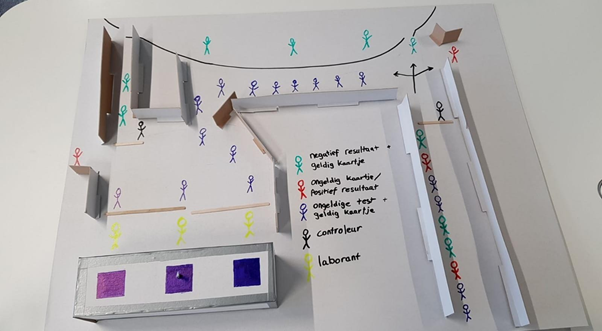 negatief resultaat +
geldig kaartje
ongeldig kaartje/
positief resultaat
ongeldige test +
geldig kaartje
controleur
laborant